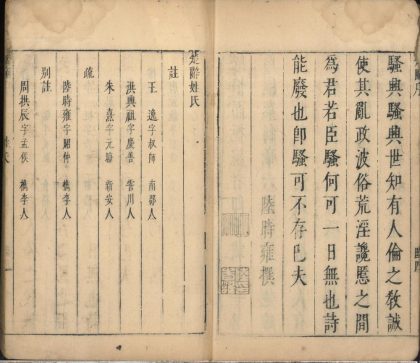 騷興騷興世知有人倫之敎誠
使其亂政波俗荒淫讒慝之間
為君若臣騷何可一日無也詩
能廢也卽騷可不存已夫
陸時雍撰
楚辭姓氏
註
王逸字叔師南郡人
洪興祖字慶善
朱熹字元晦新安人
疏
陸時雍字昭仲檇李人
別註
周拱辰字孟侯檇李人